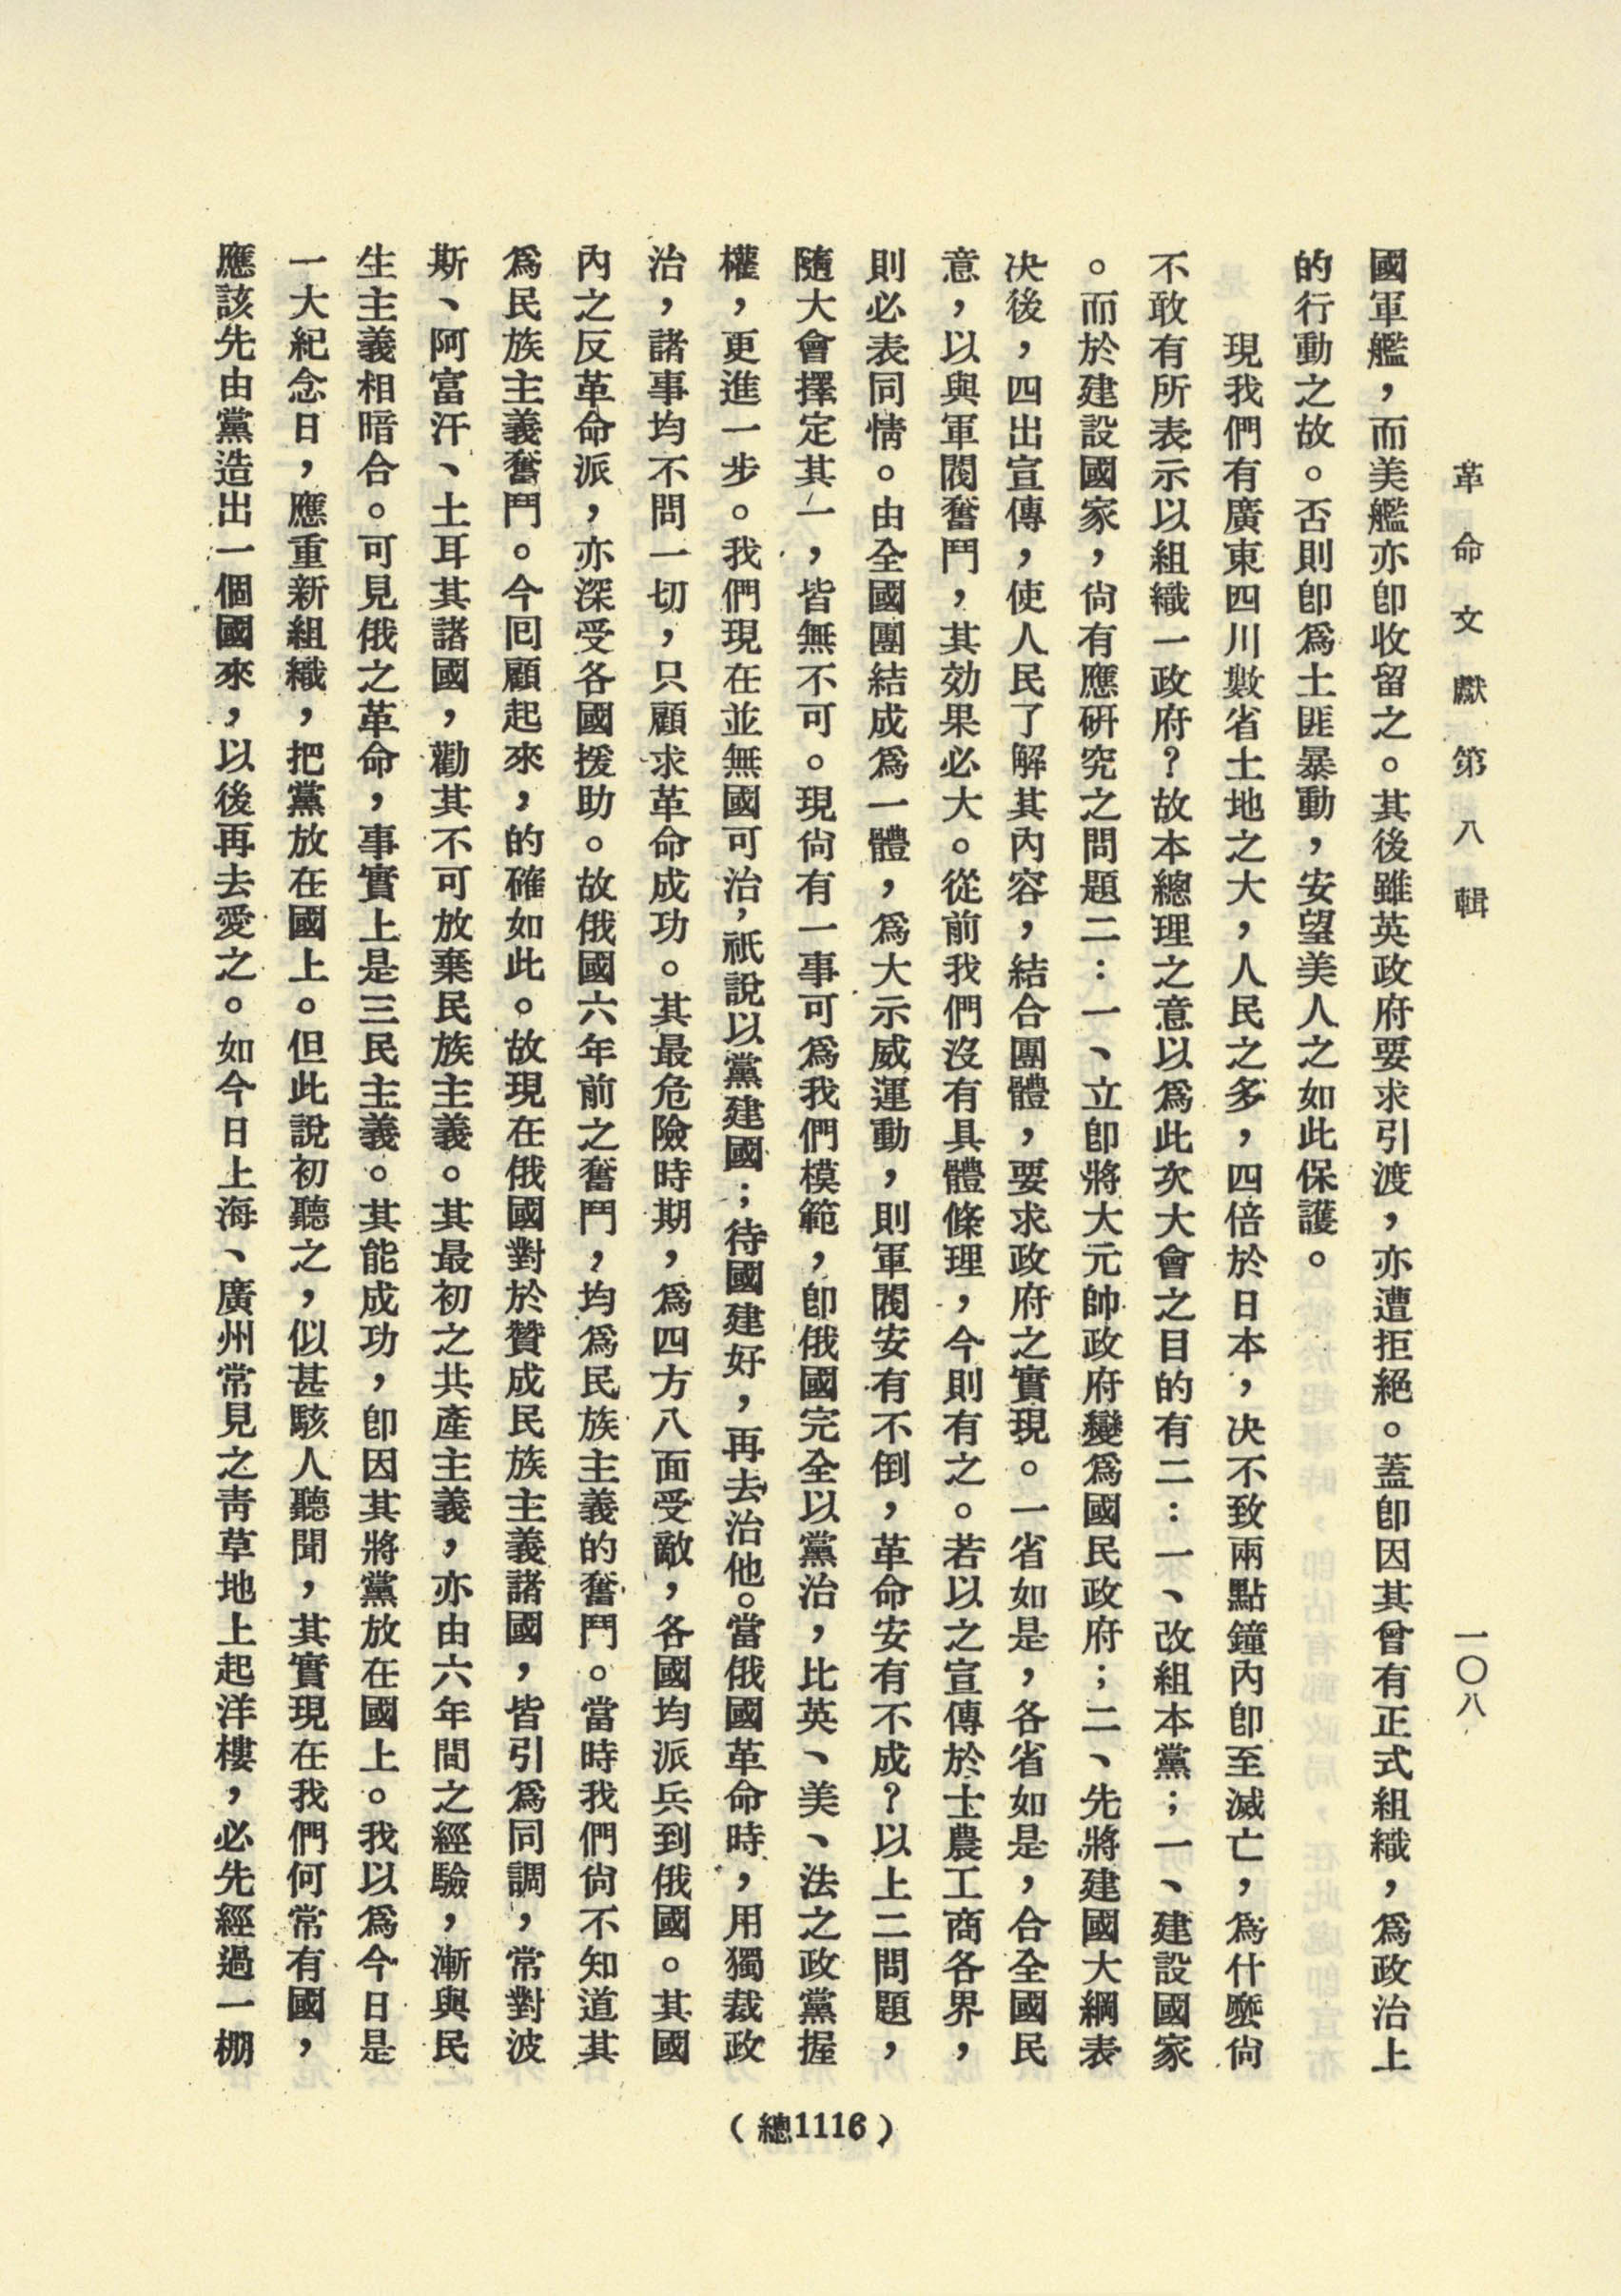 革命文獻第八輯
一〇八
國軍艦，而美艦亦卽收留之。其後雖英政府要求引渡，亦遭拒絕。蓋卽因其曾有正式組織，爲政治上
的行動之故。否則卽爲土匪暴動，安望美人之如此保護。
現我們有廣東四川數省土地之大，人民之多，四倍於日本，决不致兩點鐘內卽至滅亡，爲什麼尙
不敢有所表示以組織一政府？故本總理之意以爲此次大會之目的有二：一、改組本黨；一、建設國家
。而於建設國家，尙有應研究之問題二：一、立卽將大元帥政府變爲國民政府；二、先將建國大綱表
決後，四出宣傳，使人民了解其內容，結合團體，要求政府之實現。一省如是，各省如是，合全國民
意，以與軍閥奮鬥，其効果必大。從前我們沒有具體條理，今則有之。若以之宣傳於士農工商各界，
則必表同情。由全國團結成爲一體，爲大示威運動，則軍閥安有不倒，革命安有不成？以上二問題，
隨大會擇定其一，皆無不可。現尙有一事可爲我們模範，卽俄國完全以黨治，比英、美、法之政黨握
權，更進一步。我們現在並無國可治，祇說以黨建國；待國建好，再去治他。當俄國革命時，用獨裁政
治，諸事均不問一切，只顧求革命成功。其最危險時期，爲四方八面受敵，各國均派兵到俄國。其國
內之反革命派，亦深受各國援助。故俄國六年前之奮鬥，均爲民族主義的奮鬥。當時我們尙不知道其
爲民族主義奮鬥。今回顧起來，的確如此。故現在俄國對於贊成民族主義諸國，皆引爲同調，常對波
斯、阿富汗、土耳其諸國，勸其不可放棄民族主義。其最初之共產主義，亦由六年間之經驗，漸與民
生主義相暗合。可見俄之革命，事實上是三民主義。其能成功，卽因其將黨放在國上。我以爲今日是
一大紀念日，應重新組織，把黨放在國上。但此說初聽之，似甚駭人聽聞，其實現在我們何常有國，
應該先由黨造出一個國來，以後再去愛之。如今日上海、廣州常見之靑草地上起洋樓，必先經過一棚
（總1116）